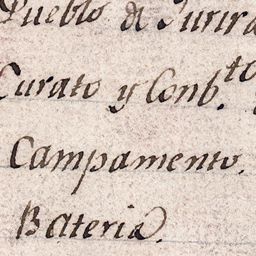 Pueblo de Yurira
Curato y Conb.to
Campamento.
Bateria.